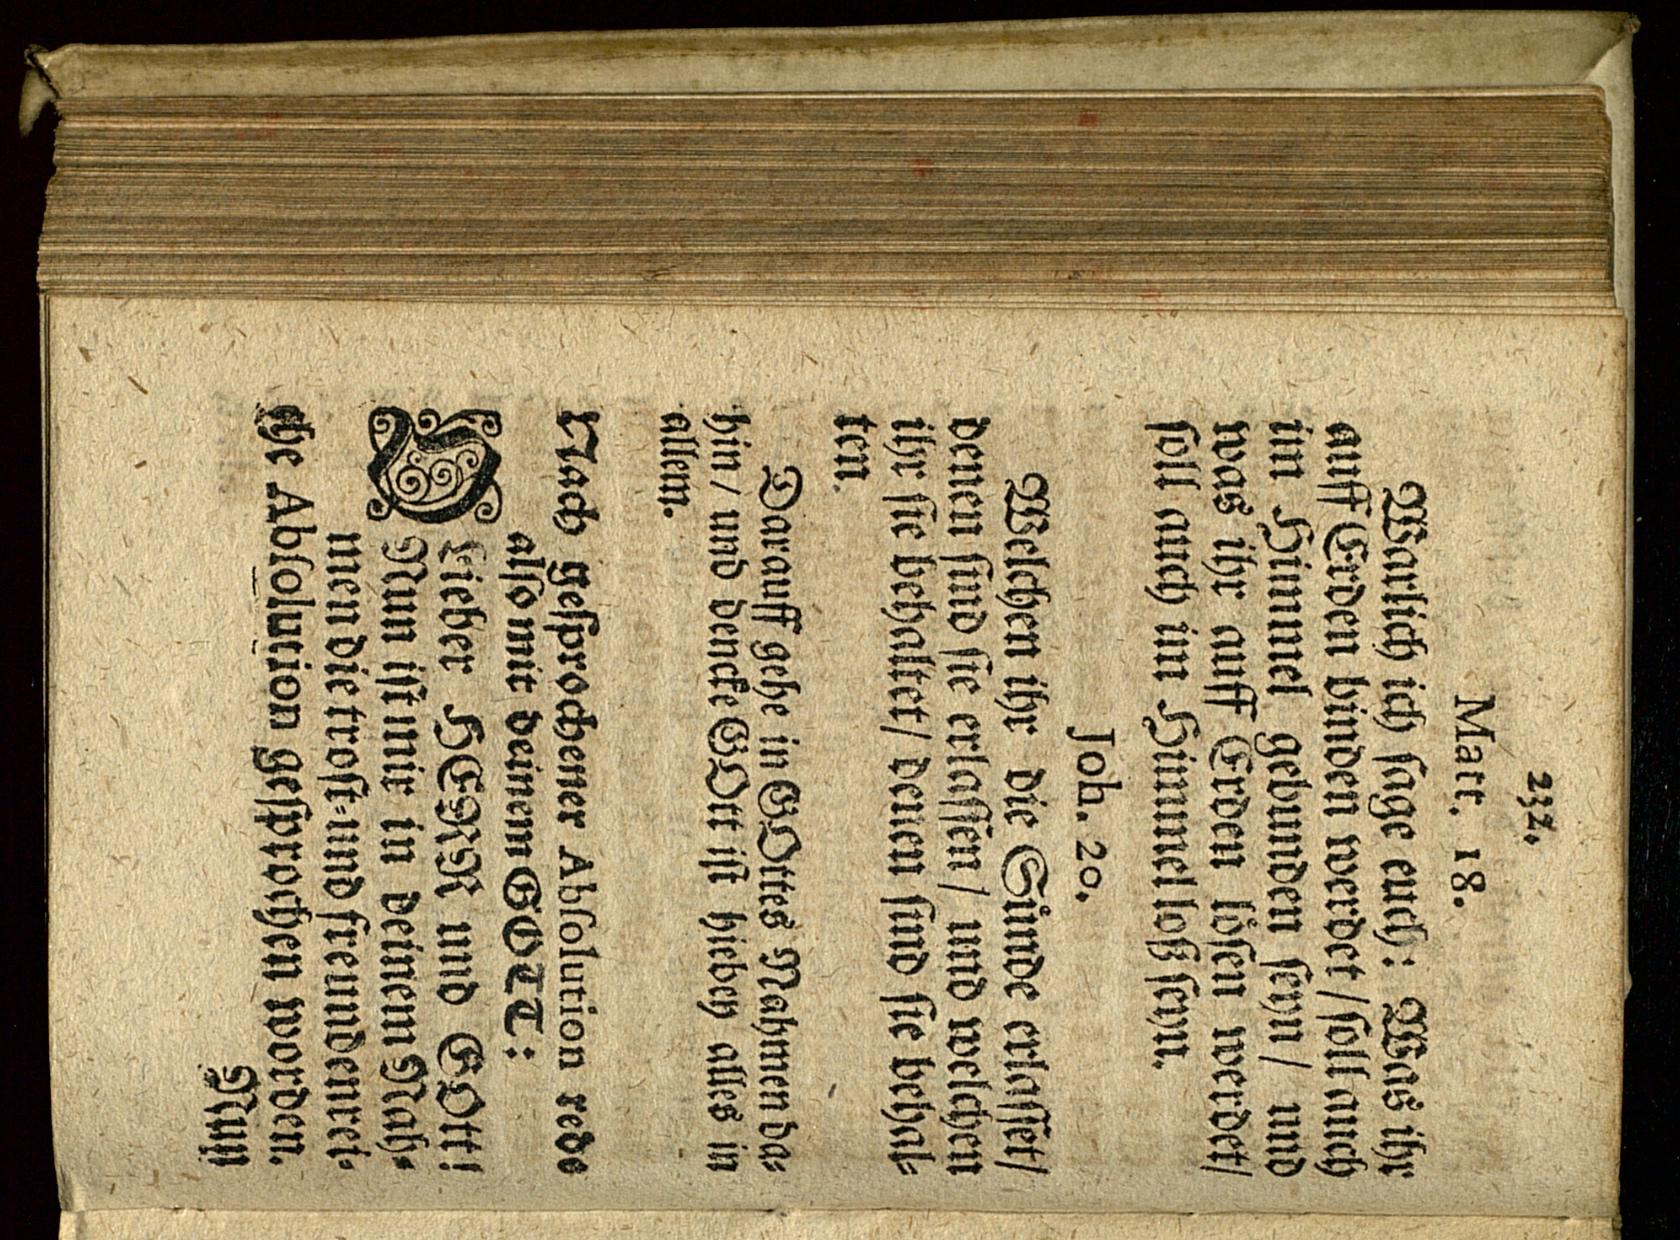 232.
Matt. 18.
Warlich ich ſage euch: Was ihr
auff Erden binden werdet / ſoll auch
im Himmel gebunden ſeyn / und
was ihr auff Erden löſen werdet /
ſoll auch im Himmel loß ſeyn.
Joh. 20.
Welchen ihr die Sünde erlaſſet /
denen ſind ſie erlaſſen / und welchen
ihr ſie behaltet / denen ſind ſie behal⸗
ten.
Darauff gehe in GOttes Nahmen da⸗
hin / und dencke GOtt iſt hiebey alles in
allem.
Nach geſprochener Abſolution rede
alſo mit deinem GOTT:
Lieber HERR und GOtt!
Nun iſt mir in deinem Nah⸗
men die troſt⸗und freundenrei⸗
che Abſolution geſprochen worden.
Nun